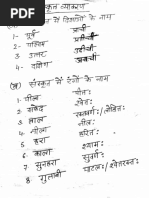 संस्कृत व्याकरण
संस्कृत में दिशाओं के नाम
1- पूर्व प्राची
2- पश्चिम प्रतीची
3- उत्तर उदीची
4- दक्षिण अवाची
(ख) संस्कृत में रंगों के नाम
1- पीला पीतः
2- सफेद श्वेतः
3- लाल रक्तवर्णः/लोहितः
4- नीला नीलः
5- हरा हरितः
6- काला श्यामः
7- सुनहरा सुवर्णः
8- गुलाबी पाटलः/श्वेतरक्तः